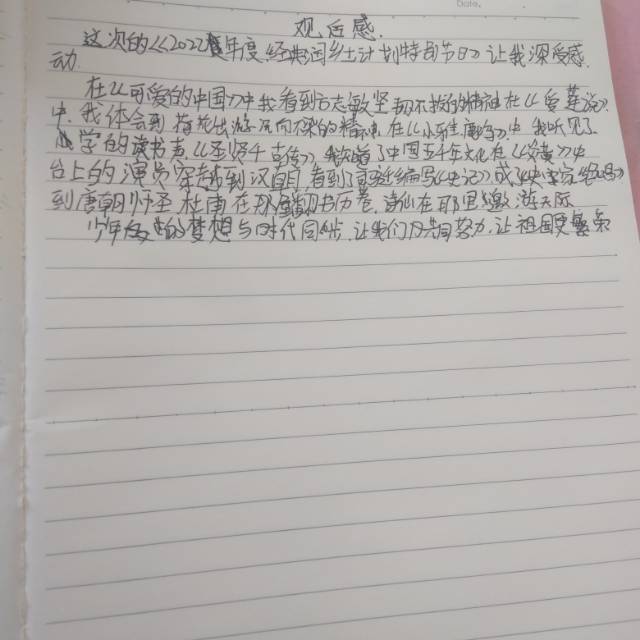 Date.
观后感.
这次的《2022年度经典润乡土计划特别节目》让我深受感
动
在《可爱的中国》中我看到方志敏坚韧不拔的精神在《爱莲说》
中.我体会到荷花出淤泥而不染的精神.在《》中我听见了
学的读书声.《圣贤千古传》我知道了中国五千年文化在《》中
台上的演员穿越到汉朝看到了司马迁编写《史记》成了史学家
到唐朝诗圣杜甫在那里翻书万卷.诗仙在那里遨游天际
少年的梦想与时代同频.让我们共同努力.让祖国更繁荣